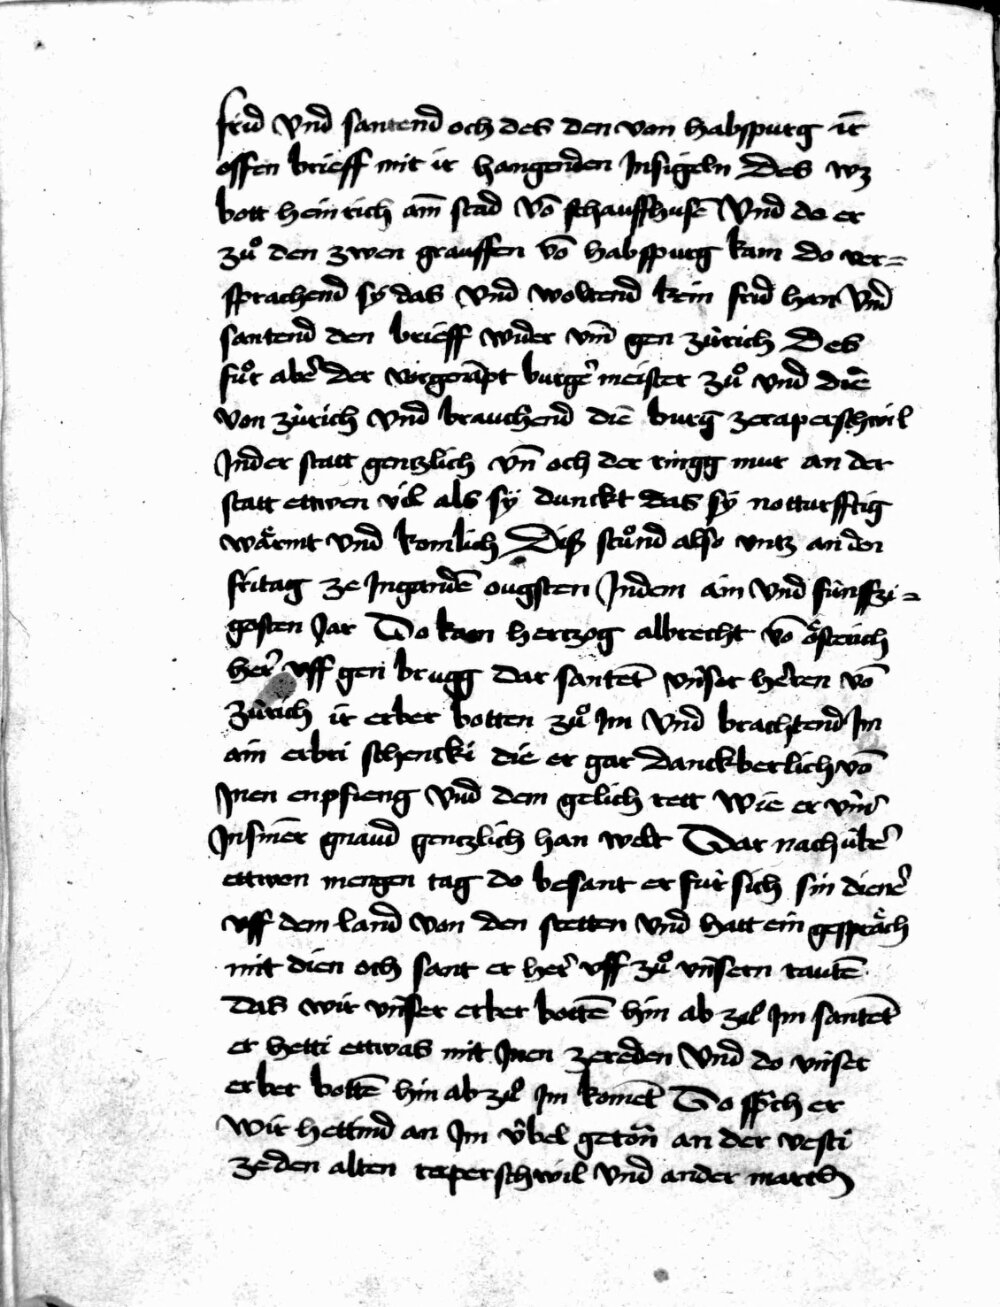 frid vnd santend och des den von habspurg ir
offen brieff mit ir hangenden Insigeln Des wz
bott heinrich am̄ stad vō schauffhusē Vnd do er
zuͦ den zwen grauffen vō habspurg kam do ver=
sprachend sÿ das vnd woltend kein frid han Vnd
santend den brieff wider vm̄ gen zürich Des
fuͦr aber der vorgenāpt burgermeister zuͦ vnd die
von zürich vnd brauchend die burg zeraperschwil
Jnder statt gentzlich vn̄ och der ringg mur an der
statt ettwen vil als sÿ dunckt das sÿ notturfftig
waͤrint vnd komlich Diß stuͦnd also vntz an den
fritag ze Jngandē ougsten Jndem ain vnd fünffzi=
gosten Jar Do kam hertzog albrecht vō oͤsterich
her vff gen brugg dar santēt vnser herren vō
Zürich ir erber botten zuͦ Jm vnd brachtend Jm
ain erbri schencki die er gar danckberlich vō
Jnen enpfieng Vnd dem gelich tett Wie er vnns
Jn siner gnaud gentzlich han welt Dar nach über
ettwen mengen tag do besant er für sich sin diener
vff dem land von den stetten vnd hatt ein gespraͤch
mit dien och sant er her vff zuͦ vnsern rautē
Das wir vnser erber bottē hin ab zuͦ Jm santēt
er hetti ettwas mit Jnen zereden Vnd do vnser
erber bottē hin ab zuͦ Jm komēt Do sprch er
Wir hettind an Jm übel getōn an der vesti
zeden alten raperschwil Vnd ander march